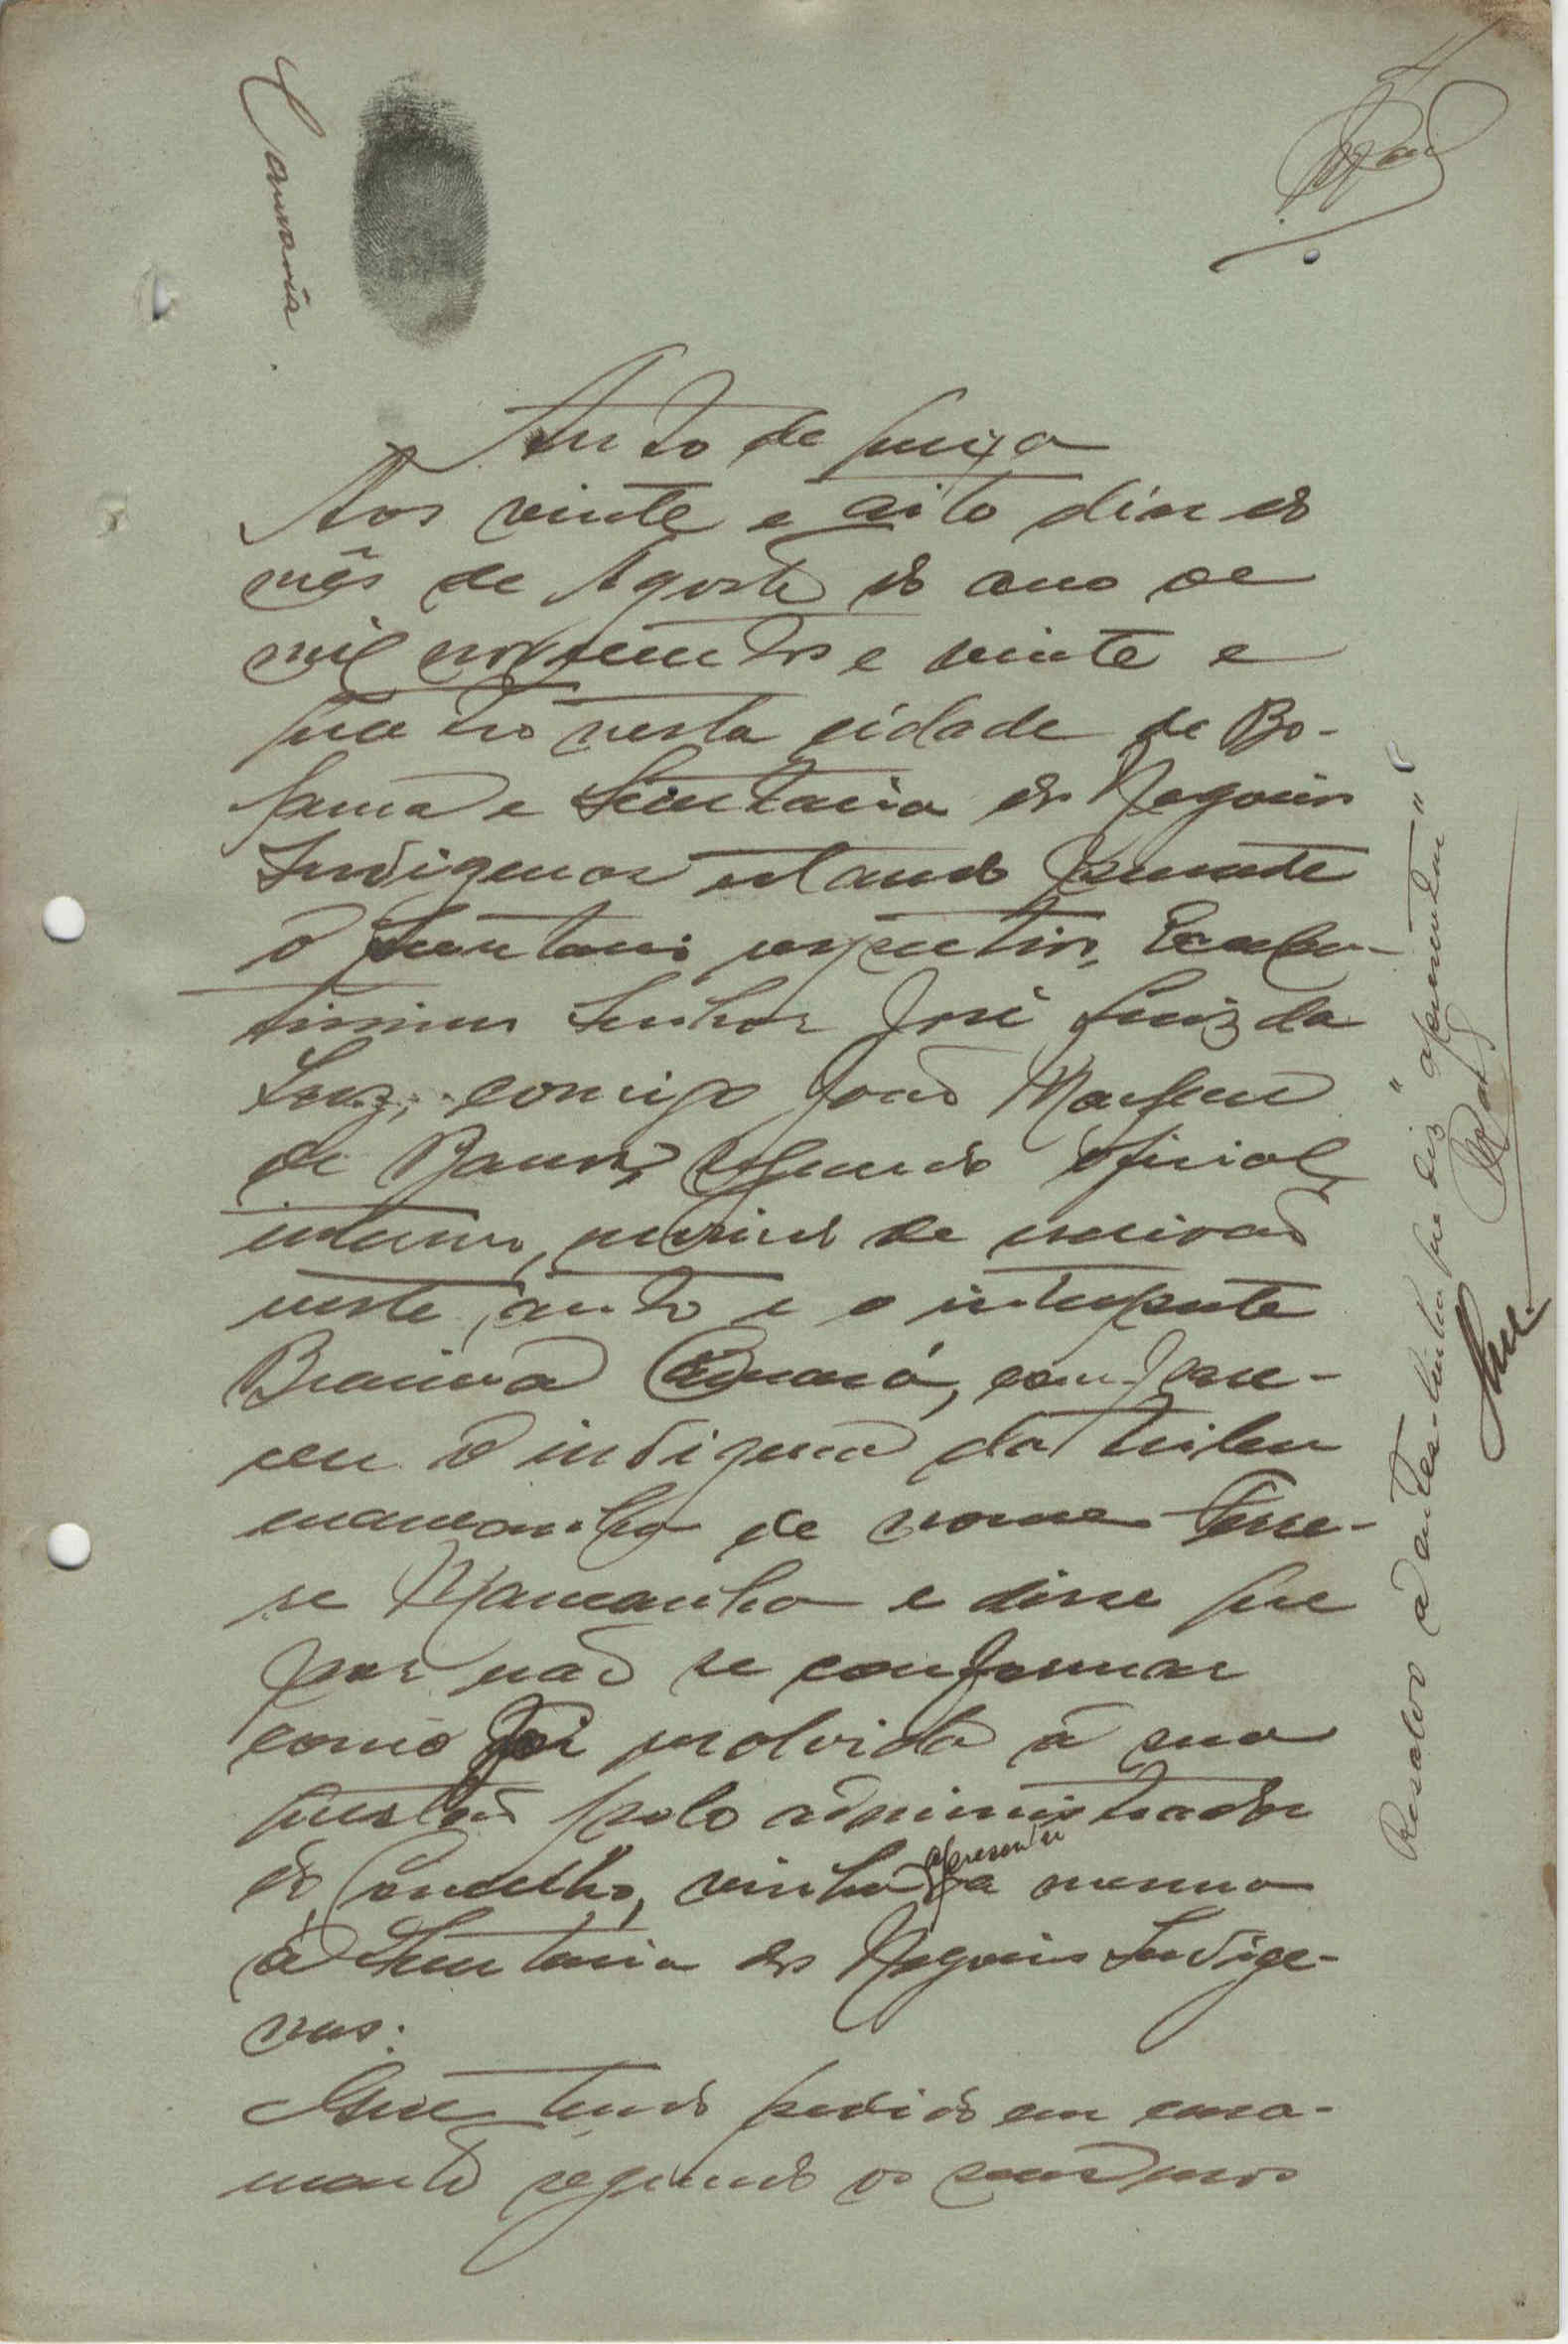 Auto de queixa
Aos vinte e oito dias do
mês de Agosto do ano de
mil novecentos e vinte e
quatro nesta cidade de Bo-
lama e Secretaria dos Negocios
Indigenas estando presente
o Secretario respectivo, Excelen-
tissimo Senhor José Luiz da
Luz, comigo João
de Barros, segundo oficial,
interino, servindo de escrivão
neste auto e o interprete
Camará, compare-
ceu o indigena da tribu
mancanha de nome
se Mancanha e disse que
por não se conformar
como foi resolvida a sua
questão pelo administrador
do Concelho, vinha apresentar a mesma
á Secretaria dos Negocios Indige-
nas.
Que tendo pedido em casa-
mento segundo os seus usos
Resalvo a entre-linha que diz "apresentar"
Luz